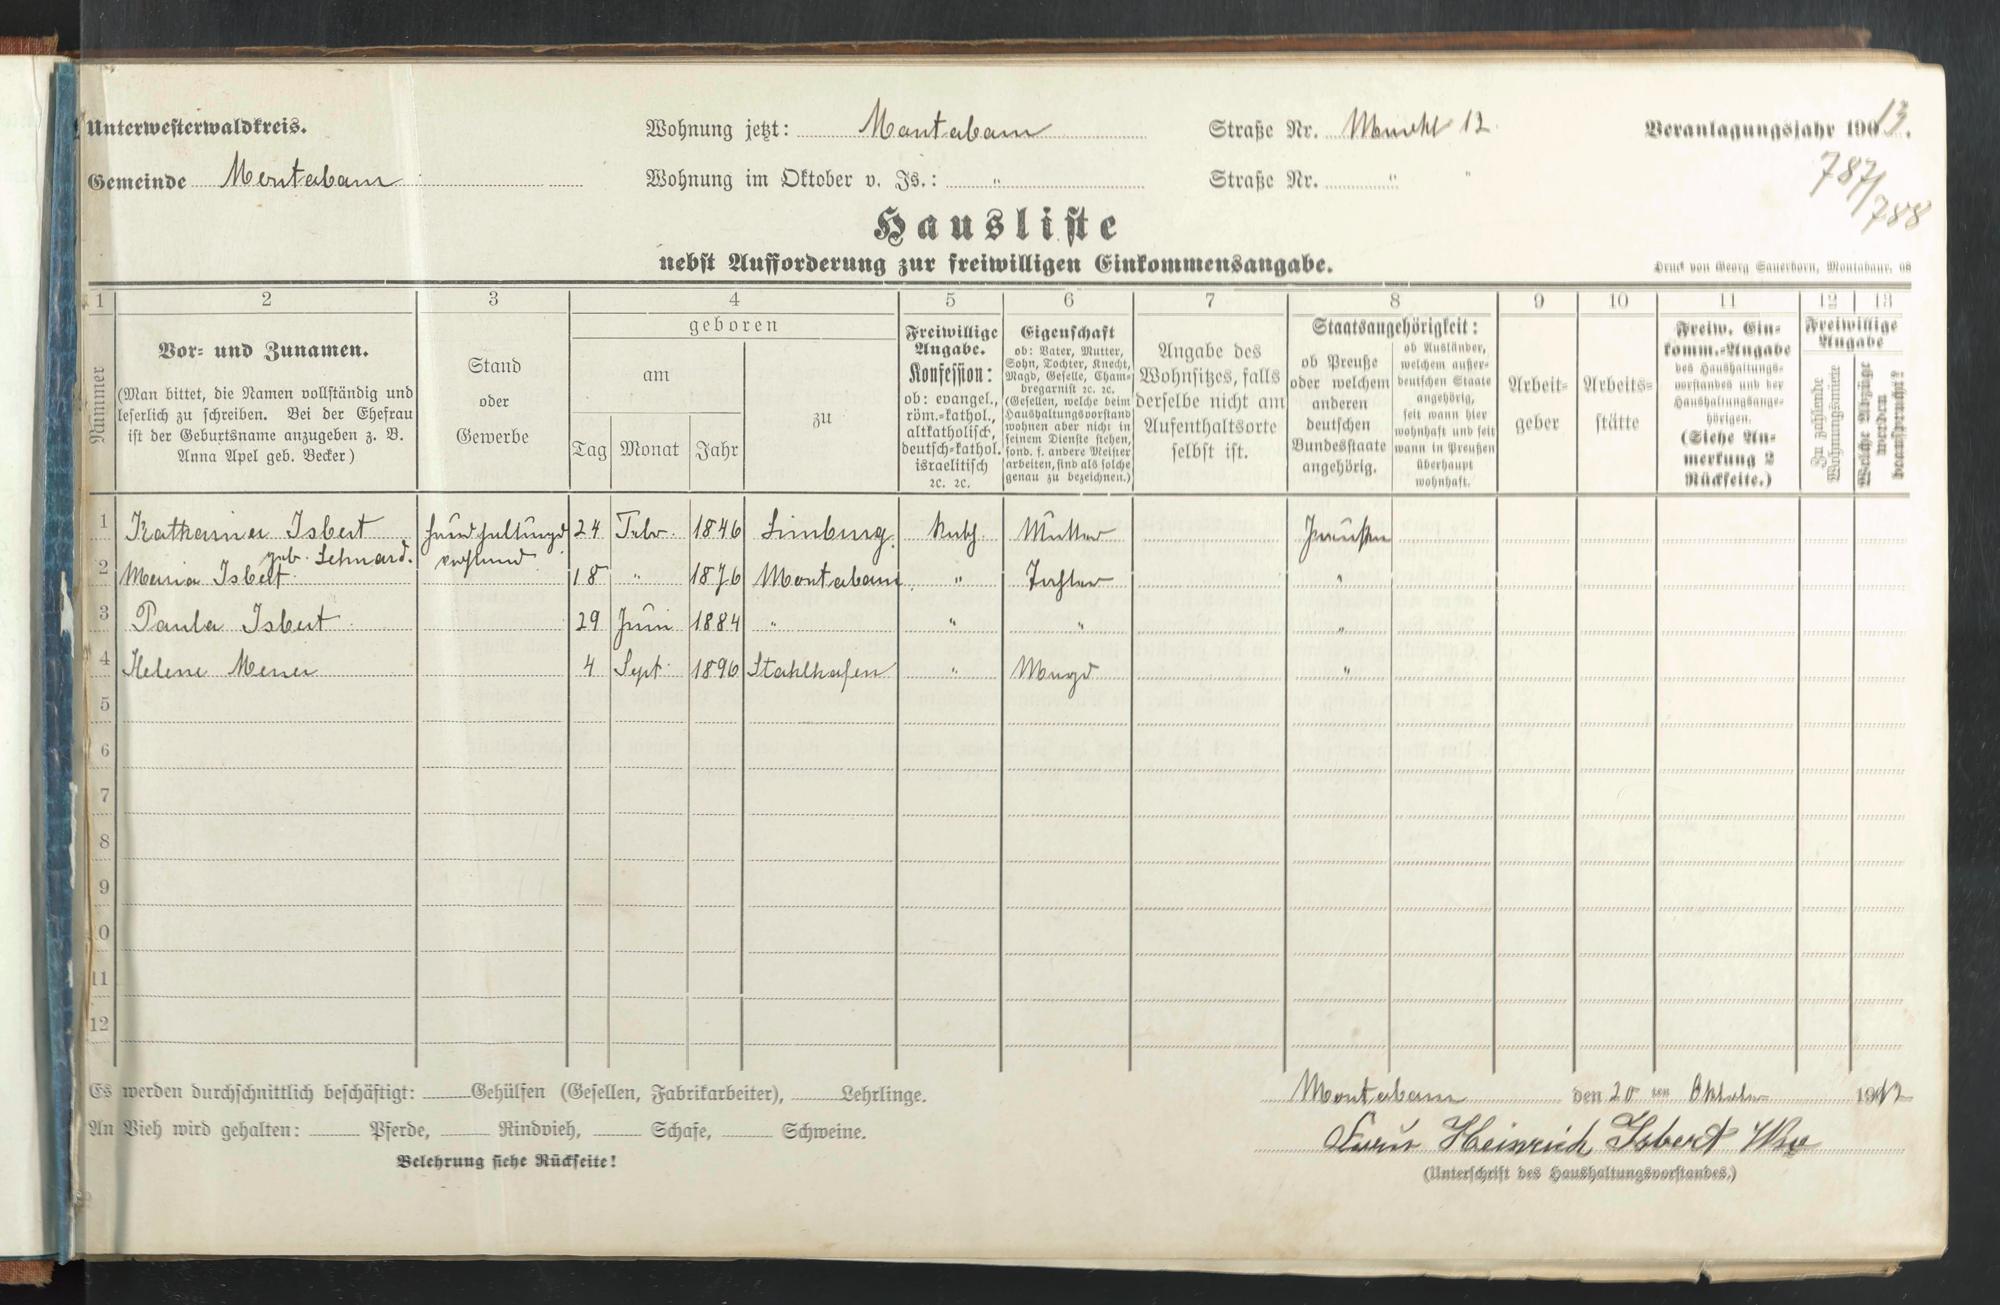 Unterwesterwaldkreis. Wohnung jetzt: Montabaur Straße Nr. Markt 12 Veranlagungsjahr 1913.
Gemeinde Montabaur Wohnung im Oktober v. Js.: " Straße Nr. " "
787/788
Hausliste
nebst Aufforderung zur freiwilligen Einkommensangabe.
Druck von Georg Sauerborn, Montabaur. 08
1 2 3 4 5 6 7 8 9 10 11 12 13
Nummer
Vor- und Zunamen.
(Man bittet, die Namen vollständig und
leserlich zu schreiben. Bei der Ehefrau
ist der Geburtsname anzugeben z. B.
Anna Apel geb. Becker)
Stand
oder
Gewerbe
geboren
am
Tag Monat Jahr
zu
Freiwillige
Angabe.
Konfession:
ob: evangel.,
röm.-kathol.,
altkatholisch,
deutsch-kathol.
israelitisch
ꝛc. ꝛc.
Eigenschaft
ob: Vater, Mutter,
Sohn, Tochter, Knecht,
Magd, Geselle, Cham-
bregarnist ꝛc. ꝛc.
(Gesellen, welche beim
Haushaltungsvorstand
wohnen aber nicht in
seinem Dienste stehen,
sond. f. andere Meister
arbeiten, sind als solche
genau zu bezeichnen.)
Angabe des
Wohnsitzes, falls
derselbe nicht am
Aufenthaltsorte
selbst ist.
Staatsangehörigkeit:
ob Preuße
oder welchem
anderen
deutschen
Bundesstaate
angehörig.
ob Ausländer,
welchem außer-
deutschen Staate
angehörig,
seit wann hier
wohnhaft und seit
wann in Preußen
überhaupt
wohnhaft.
Arbeit-
geber
Arbeits-
stätte
Freiw. Ein-
komm.-Angabe
des Haushaltungs-
vorstandes und der
Haushaltungsange-
hörigen.
(Siehe An-
merkung 2
Rückseite.)
Freiwillige
Angabe
Zu zahlende
Wohnungsmiete
Welche Abzüge
werden
beansprucht?
1 Katharina Isbert Haushaltungs 24 Febr. 1846 Limburg. Kath. Mutter Preußen
geb. Lehnard. vorstand
2 Maria Isbert 18 " 1876 Montabaur " Tochter "
3 Paula Isbert 29 Juni 1884 " " " "
4 Helene Meuer 4 Sept. 1896 Stahlhofen " Magd "
5
6
7
8
9
10
11
12
Es werden durchschnittlich beschäftigt: Gehülfen (Gesellen, Fabrikarbeiter), Lehrlinge.
An Vieh wird gehalten: Pferde, Rindvieh, Schafe, Schweine.
Belehrung siehe Rückseite!
Montabaur den 20 ten Oktober 1912
Frau Heinrich Isbert Wwe
(Unterschrift des Haushaltungsvorstandes.)